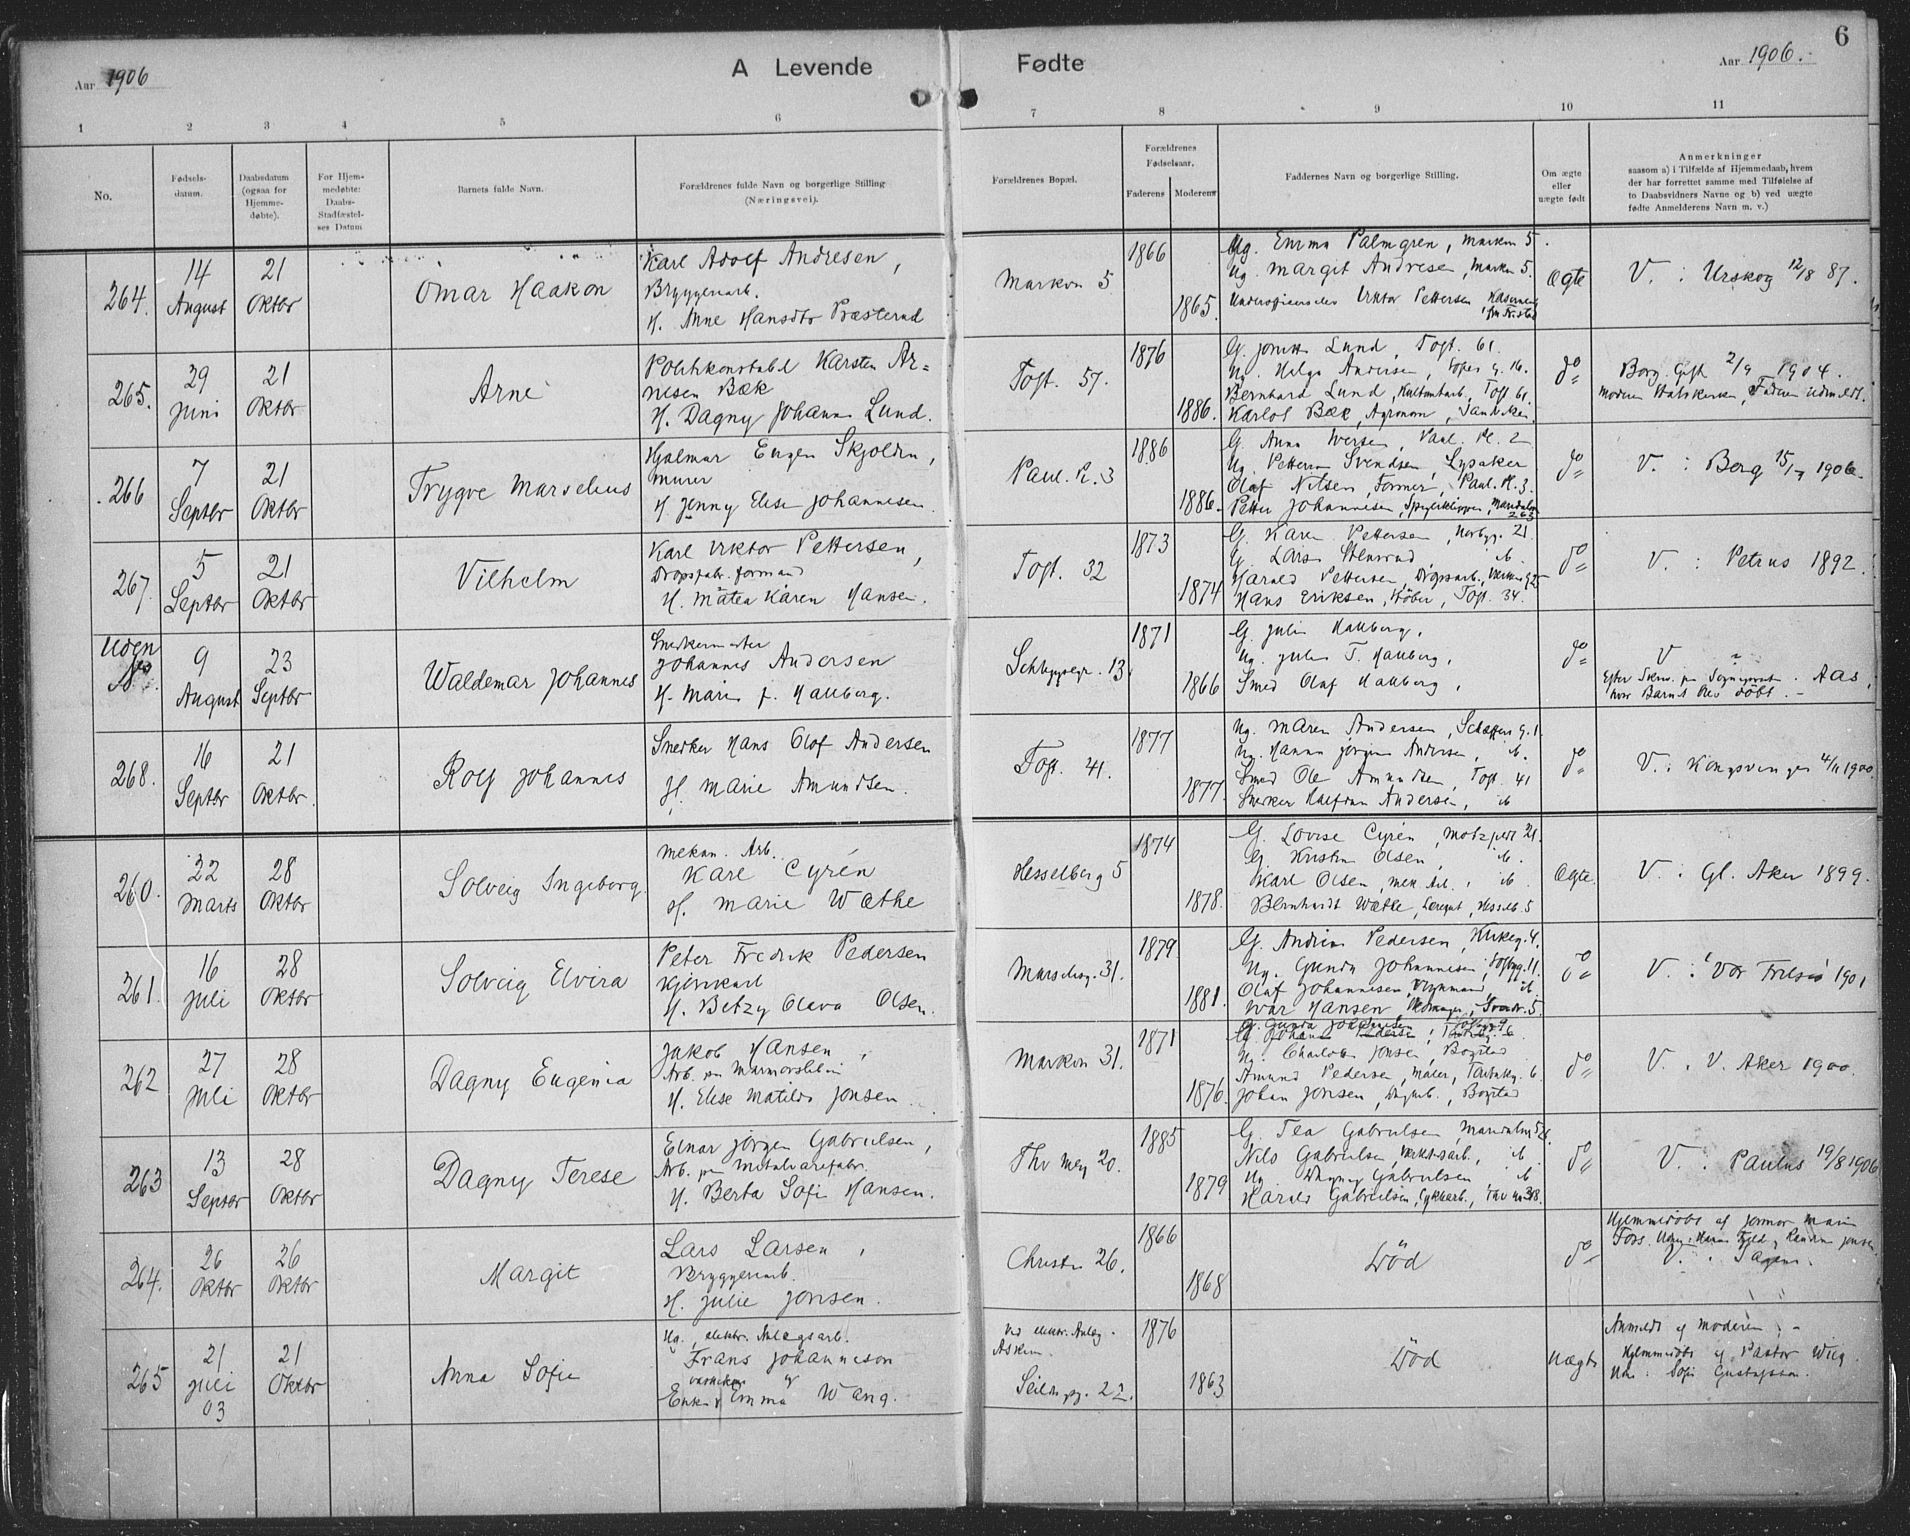 6
Aar 1906
A Levende Fødte
Aar 1906.
1 2 3 4 5 6 7 8 9 10 11
No.
Fødsels-
datum.
Daabsdatum
(ogsaa for
Hjemme-
døbte).
For Hjem-
medøbte:
Daabs-
Stadfæstel-
ses Datum
Barnets fulde Navn.
Forældrenes fulde Navn og borgerlige Stilling
(Næringsvei).
Forældrenes Bopæl.
Forældrenes
Fødselsaar.
Faderens Moderens
Faddernes Navn og borgerlige Stilling.
Om ægte
eller
uægte født
Anmerkninger
saasom a) i Tilfælde af Hjemmedaab, hvem
der har forrettet samme med Tilføielse af
to Daabsvidners Navne og b) ved uægte
fødte Anmelderens Navn m. v.)
264.
14
August
21
Oktbr
Omar Haakon
Karl Adolf Andresen,
Bryggeriarb.
H. Anne Hansdtr Præsterud
Markvn 5
1866
1865.
Ug. Emma Palmgren, Markvn 5.
Ug. Margit Andresen, Markvn 5.
Viktor Pettersen
Ægte
V. : Urskog 12/8 87.
265.
29
Juni
21
Oktbr
Arne
Politikonstabel Karsten Ar=
nesen Bæk
H. Dagny Johanne Lund.
Toft. 57.
1876
1886.
G. Lund, Toft. 61.
Ug. Helga Andersen, 16.
Bernhard Lund, Toft 61.
Karlot Bæk, Agronom,
do
Borg. Gift 2/9 1904.
Moderen Statskirken, Faderen udmeldt.
266
7
Septbr
21
Oktbr
Trygve Marselius
Hjalmar Eugen Skjoldn,
Murer
H. Jenny Elise Johannesen.
Paul. Pl. 3
1886
1886.
G. Anna Iversen, Paul. Pl. 2
Ug. Petterin Svendsen, Lysaker
Olaf Nilsen, Former, Paul. Pl. 3.
Petter Johannesen, Maridalsv
263
do
V. : Berg 15/7 1906.
267.
5
Septbr
21
Oktbr
Vilhelm
Karl Viktor Pettersen,
Dropsfabr. formand
H. Matea Karen Hansen.
Toft. 32
1873
1874
G. Karen Pettersen, Norbyg. 21.
G. Lars Stensrud, ib.
Harald Pettersen, Dropsarb.,
Hans Eriksen, Støber, Toft. 34.
do
V. : Petrus 1892.
Uden
No.
9
August
23
Septbr
Waldemar Johannes
Snedkermester
Johannes Andersen
H. Marie f. Hallberg.
13.
1871
1866
G. Julie Hallberg,
Ug. Julie T. Hallberg,
Smed Olaf Hallberg,
do
V
Efter Skriv. fra Sogneprest. Aas,
hvor Barnet blev døbt. -
268.
16
Septbr
21
Oktbr.
Rolf Johannes
Snedker Hans Olaf Andersen
H. Marie Amundsen.
Toft. 41.
1877
1877.
Ug. Maren Andersen, Schæffers g. 1
Ug. Hanna Jørgine Andersen, ib.
Smed Ole Amundsen, Toft. 41
Snedker Halfdan Andersen, ib
do
V. : Kongsvinger 4/11 1900.
260.
22
Marts
28
Oktbr
Solveig Ingeborg
Mekan. Arb.
Karl Cyrén
H. Marie Wæthe
Hesselberg 5
1874
1878.
G. Lovise Cyrén, 21.
G. Kristine Olsen, ib.
Karl Olsen, mek Arb., ib.
Bernhardt Wæthe, Hesselb. 5
Ægte.
V. : Gl. Aker 1899.
261.
16
Juli
28
Oktbr
Solveig Elvira
Peter Fredrik Pedersen
Kjørekarl
H. Betzy Olava Olsen.
Marselisg. 31.
1879.
1881.
G. Andrine Pedersen, Kirkeg. 4.
Ug. Gunda Johannesen, Toftbyg. 11.
Olaf Johannesen, ib.
Ivar Hansen, 5.
do
V. : Vor Frelser 1901
262
27
Juli
28
Oktbr
Dagny Eugenia
Jakob Hansen,
Arb. paa Marmorsliberi
H. Elise Matilde Jonsen.
Markvn 31.
1871
1876.
G. Gunda Johannesen
G. Johanne Pedersen,
Ug. Charlotte Jonsen, Bogstad
Amund Pedersen, Maler, 6.
Johan Jonsen, Dagarb., Bogstad
do
V. : V. Aker 1900.
263
13
Septbr
28
Oktbr
Dagny Terese
Einar Jørgen Gabrielsen,
Arb. paa Metalvarefabr.
H. Berta Sofie Hansen.
Thv Mey 20.
1885
1879
G. Tea Gabrielsen, Maridalsv 526.
Nils Gabrielsen, Verkstedsarb., ib.
Ug. Dagny Gabrielsen ib
Harald Gabrielsen, 38.
do
V. : Paulus 19/8 1906
264.
26
Oktbr
26
Oktbr
Margit
Lars Larsen,
Bryggeriarb.
H. Julie Jonsen.
Christies 26.
1866
1868
Død
do
Hjemmedøbt af Jormor Marie
Foss.
V. : Sagene.
265
21
Juli
03
21
Oktbr
Anna Sofie
Ug. elektr. Anlægsarb.
Frans Johanneson
og
Enke Emma Wang.
Ved elektr. Anlæg.
Askim.
Seildugsg. 22.
1876
1863
Død
Uægte
Anmeldt af Moderen. -
Hjemmedøbt af Pastor Wiig.
Sofie Gustafson.